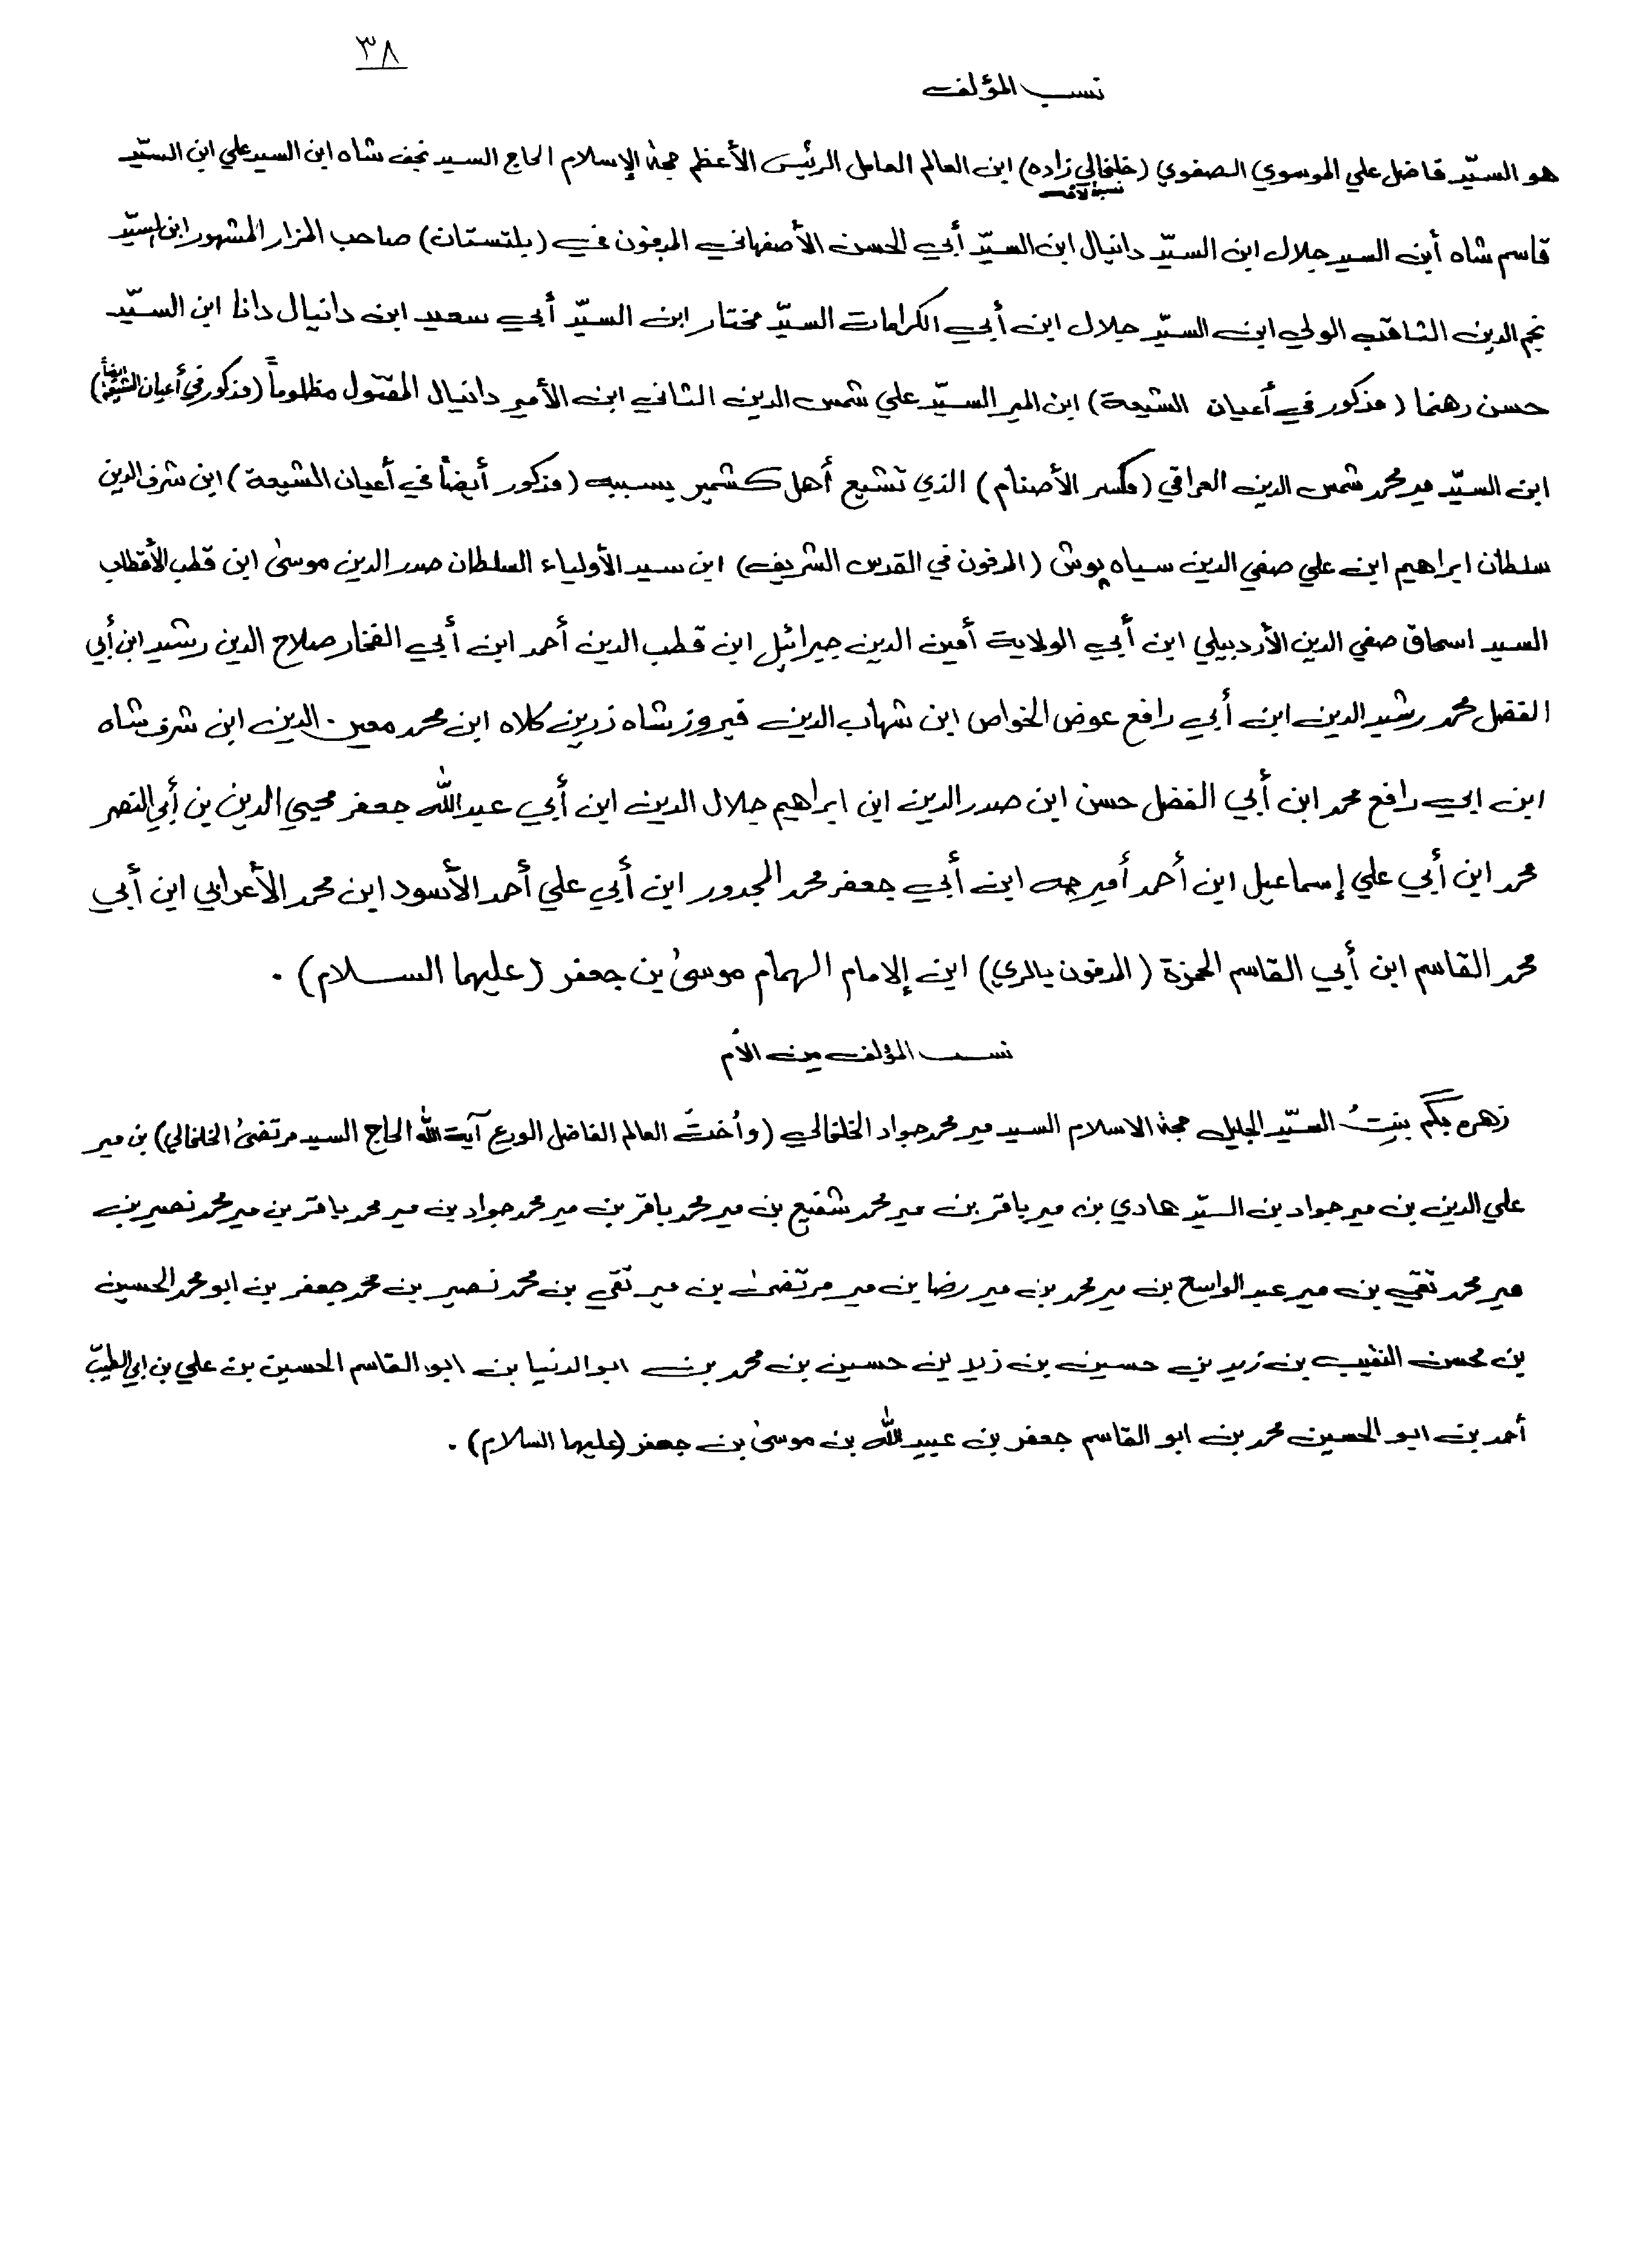 ٣٨
نسب المؤلف
هو السيّد فاضل علي الموسوي الصفوي (خلخالي زاده) ابن العالم العامل الرئيس الأعظم حجة الإسلام الحاج السيد نجف شاه ابن السيد علي ابن السيّد
نسبة لأمه
قاسم شاه أبن السيد جلال ابن السيّد دانيال ابن السيّد أبي الحسن الأصفهاني المدفون في (بلتستان) صاحب المزار المشهور ابن السيّد
نجم الدين الثاقب الولي ابن السيّد جلال ابن أبي الكرامات السيّد مختار ابن السيّد أبي سعيد ابن دانيال دانا ابن السيّد
حسن رهنما (مذكور في أعيان الشيعة) ابن المير السيّد علي شمس الدين الثاني ابن الأمير دانيال المقتول مظلوماً (مذكور في أعيان الشيعة أيضاً)
ابن السيّد مير محمد شمس الدين العراقي (مكسر الأصنام) الذي تشيع أهل كشمير بسببه (مذكور أيضاً في أعيان الشيعة) ابن شرف الدين
سلطان ابراهيم ابن علي صفي الدين سياه پوش (المدفون في القدس الشريف) ابن سيد الأولياء السلطان صدر الدين موسىٰ ابن قطب الأقطاب
السيد اسحاق صفي الدين الأردبيلي ابن أبي الولاية أمين الدين جبرائيل ابن قطب الدين أحمد ابن أبي الفخار صلاح الدين رشيد ابن أبي
الفضل محمد رشيد الدين ابن أبي رافع عوض الخواص ابن شهاب الدين فيروز شاه زرين كلاه ابن محمد معين الدين ابن شرف شاه
ابن ابي رافع محمد ابن أبي الفضل حسن ابن صدر الدين ابن ابراهيم جلال الدين ابن أبي عبد الله جعفر محيي الدين بن أبي النصر
محمد ابن أبي علي إسماعيل ابن أحمد أميرجه ابن أبي جعفر محمد المجدور ابن أبي علي أحمد الأسود ابن محمد الأعرابي ابن أبي
محمد القاسم ابن أبي القاسم الحمزة (المدفون بالري) ابن إلامام الهمام موسىٰ بن جعفر (عليهما السلام) .
نسب المؤلف من الأم
زهره بگم بنتُ السيّد الجليل حجة الاسلام السيد مير محمد جواد الخلخالي (وأختُ العالم الفاضل الورع آية الله الحاج السيد مرتضىٰ الخلخالي) بن مير
علي الدين بن مير جواد بن السيّد هادي بن مير باقر بن مير محمد شفيع بن مير محمد باقر بن مير محمد جواد بن مير محمد باقر بن مير محمد نصير بن
مير محمد تقي بن مير عبد الواسع بن مير محمد بن مير رضا بن مير مرتضىٰ بن مير تقي بن محمد نصير بن محمد جعفر بن ابو محمد الحسين
بن محسن النقيب بن زيد بن حسين بن زيد بن حسين بن محمد بن ابو الدنيا بن ابو القاسم الحسين بن علي بن ابي الطيبّ
أحمد بن ابو الحسين محمد بن ابو القاسم جعفر بن عبيد الله بن موسىٰ بن جعفر (عليهما السلام) .